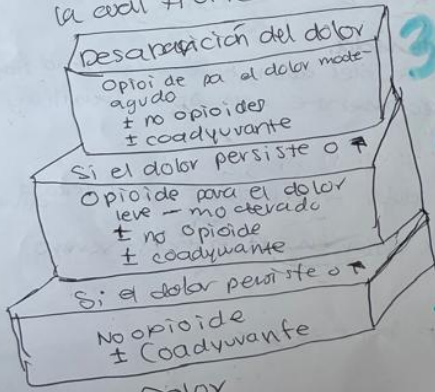 la cual
3
Desaparición del dolor
Opioide pa el dolor mode-
agudo
± no opioides
± coadyuvante
Si el dolor persiste o ↑
Opioide para el dolor
leve - moderado
± no opioide
± coadyuvante
Si el dolor persiste o ↑
No opioide
± Coadyuvante
Dolor